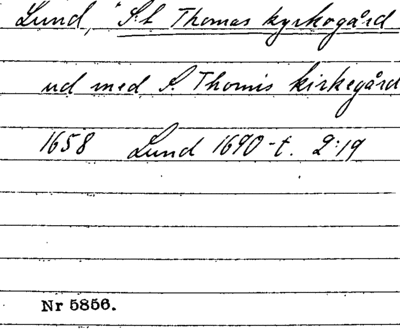 Lund, "S:t Thomas kyrkogård
ud med S. Thomis kirkegård
1658 Lund 1690-t. 2:19
Nr 5856.